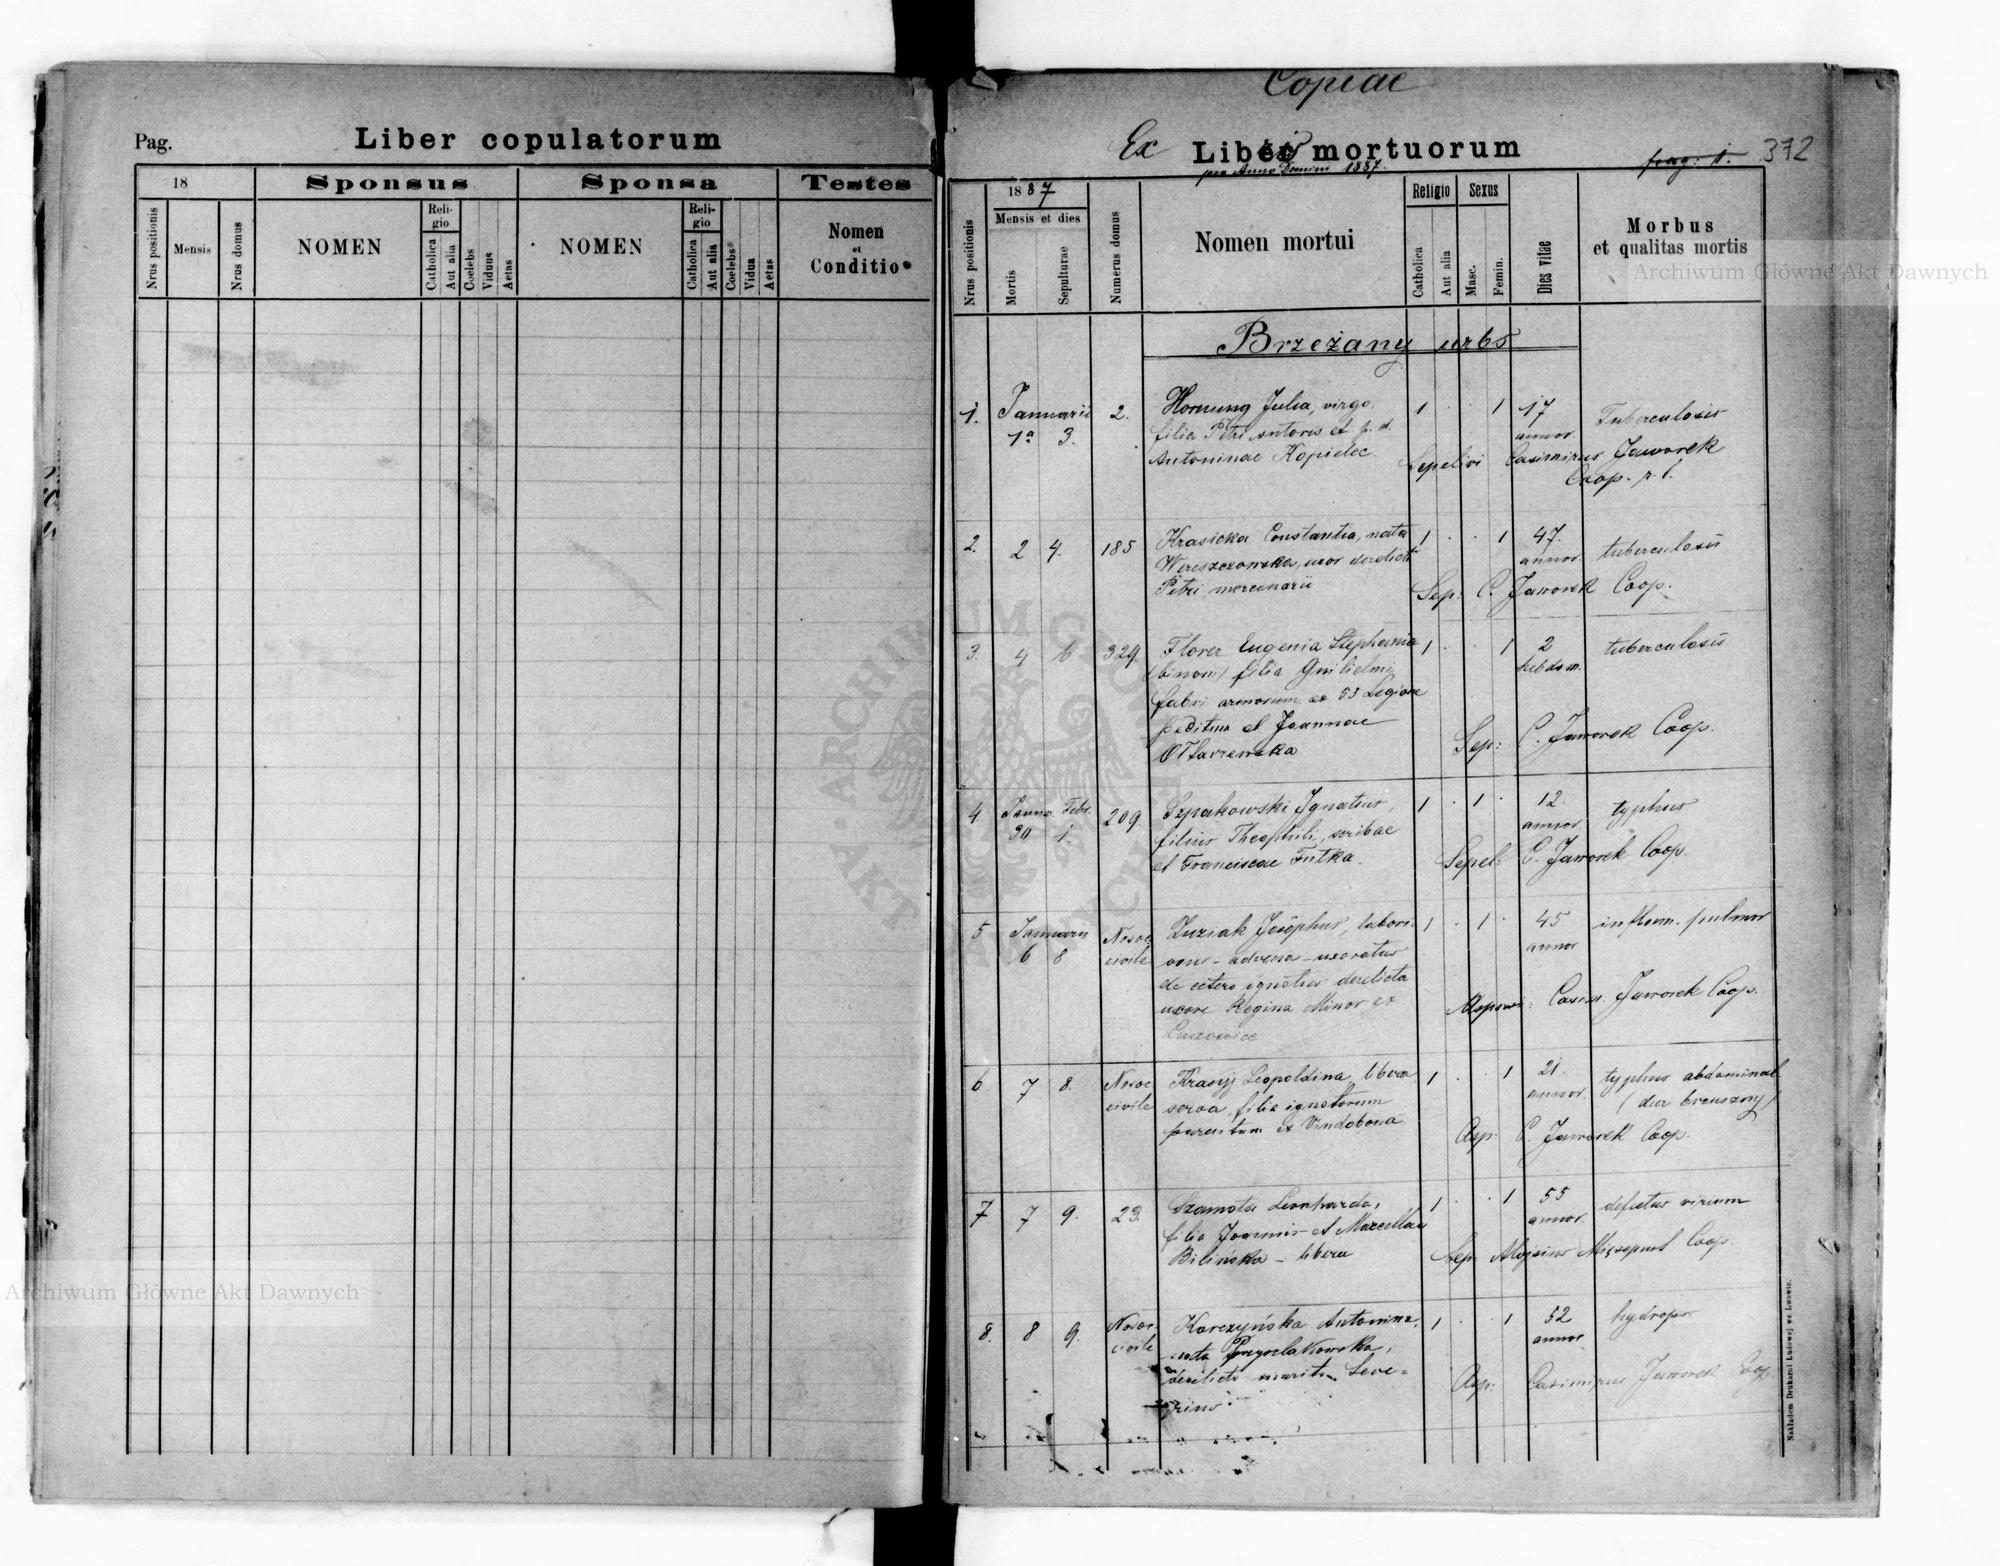 Pag.
Liber copulatorum
18
Sponsus
Sponsa
Testes
Nrus positionis
Mensis
Nrus domus
NOMEN
Religio
Catholica
Aut alia
Coelebs
Viduus
Aetas
NOMEN
Religio
Catholica
Aut alia
Coelebs
Vidua
Aetas
Nomen
et
Conditio
Copiae
Ex Libri mortuorum
pro Anno Domini 1887.
pag: 1.
372
Nrus positionis
1887
Mensis et dies
Mortis
Sepulturae
Numerus domus
Nomen mortui
Religio
Catholica
Aut alia
Sexus
Masc.
Femin.
Dies vitae
Morbus
et qualitas mortis
Brzeżany urbs
1. Januarii 2. Hornung Julia, virgo 1 1 17 Tuberculosis
1ª 3. filia Petri sutoris et p. d. annor.
Antoninae Kopielec. Sepelivi Casimirus Jaworek
Coop. r. l.
2. 2 4. 185 Krasicka Constantia, nata 1 1 47. tuberculosis
uxor derelicti annor.
Petri mercenarii Sep: C. Jaworek Coop.
3. 4 6 329. Florer Eugenia Stephania 1 1 2 tuberculosis
(binom) filia Guilielmi hebdom.
fabri armorum ex 55 Legione
peditum et Joannae
Sep: C. Jaworek Coop.
4 Januar Febr. 209. Szpakowski Ignatius, 1 1 12. typhus
30 1. filius Theophili, scribae annor
et Franciscae Futka. Sepel: C. Jaworek Coop.
5 Januarii Nosoc. Zuziak Josephus, 1 1 45 inflam. pulmon
6 8 civile advena - uxoratus annor
de cetero ignotus derelicta
uxore Regina Minor ex Casim. Jaworek Coop.
6 7 8. Nosoc. Leopoldina, libera 1 1 21. typhus abdominal
civile serva, filia ignotorum annor. (dur brzuszny)
parentum ex Vindobona Asp: C. Jaworek Coop.
7 7 9. 23. Szamota Leonharda, 1 1 55 defectus virium
filia Joannis et Marcellae annor.
Bilińska - libera Sep. Aloysius Coop.
8. 8 9. Nosoc. Korczyńska Antonina, 1 1 52 hydrops
civile nata annor
derelicto marito Seve=
rino. Asp: Casimirus Jaworek Coop.
Nakładem Drukarni Ludowej we Lwowie.
Archiwum Główne Akt Dawnych
Archiwum Główne Akt Dawnych